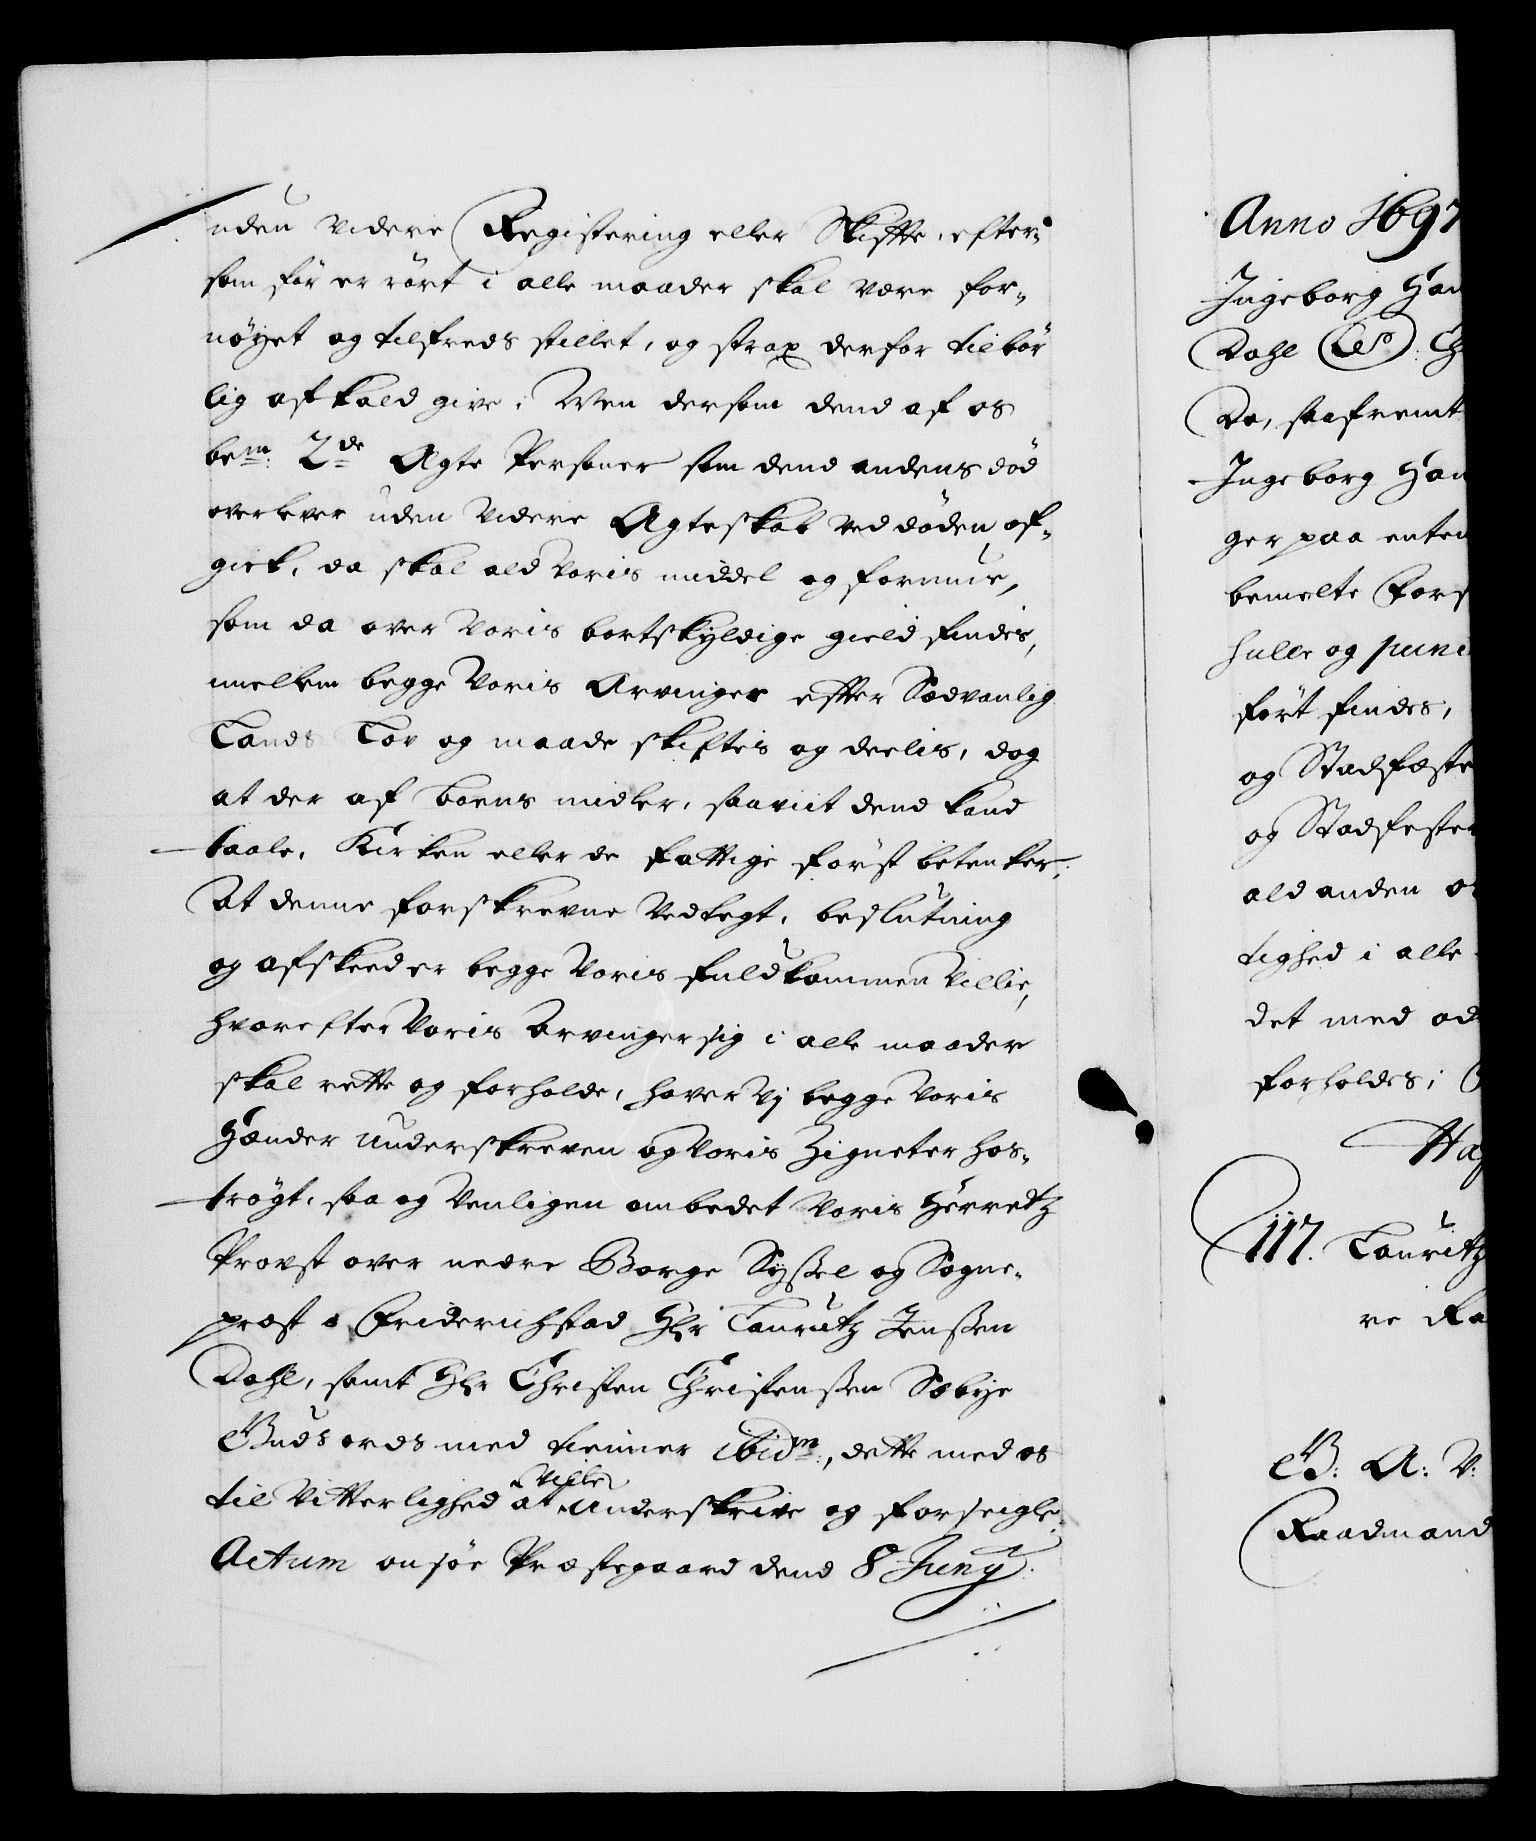 uden videre Registering eller Skiffte, efter-
som för er rört i alle maader skal være for-
nöyet og tilfreds stillet, og strax derfor tilbör
lig afkald give; Men dersom dend af os
bem: 2de Ægte Personer som dend andens död
overlever uden videre Ægteskab ved döden af-
gick, da skal ald voris middel og formue,
som da over voris bortskyldige gield findes,
imellem begge voris Arvinger effter Sædvanlig
Lands Lov og maade skiftes og deelis, dog
at der af boens midler, saavit dend kand
taale, Kirken eller de fattige först betenker,
At denne forskrevne Vedtegt, beslutning
og afskeed er begge Voris fuldkommen Villie,
hvorefter Voris Arvinger sig i alle maader
skal rette og forholde, haver Vj begge Voris
Hænder underskreven og Voris Zigneter hos-
trögt, saa og Venligen ombedet Voris Herretz
Provst over nedre Borge Syssel og Sogne-
præst i Friderichstad Hr Lauritz Jenssen
Dahl, samt Hr Christen Christenssen Sæbye
Guds ords med tienner ibidm:, dette med os
til Vitterlighed at ville underskrive og forseigle.
Actum onsöe Præstegaard dend 8 Juny
Anno 1697
Ingeborg Han
Dahl (LS): Ch
Da, saafremt
Ingeborg Han
ger paa enten
bemelte Fors
hulle og punc
fört findes,
og Stadfæste
og Stadfester
ald anden
tighed i alle
det med od
forholdes;
Haf
117. Lauritz
re Ra
G: A: V:
Raadmand